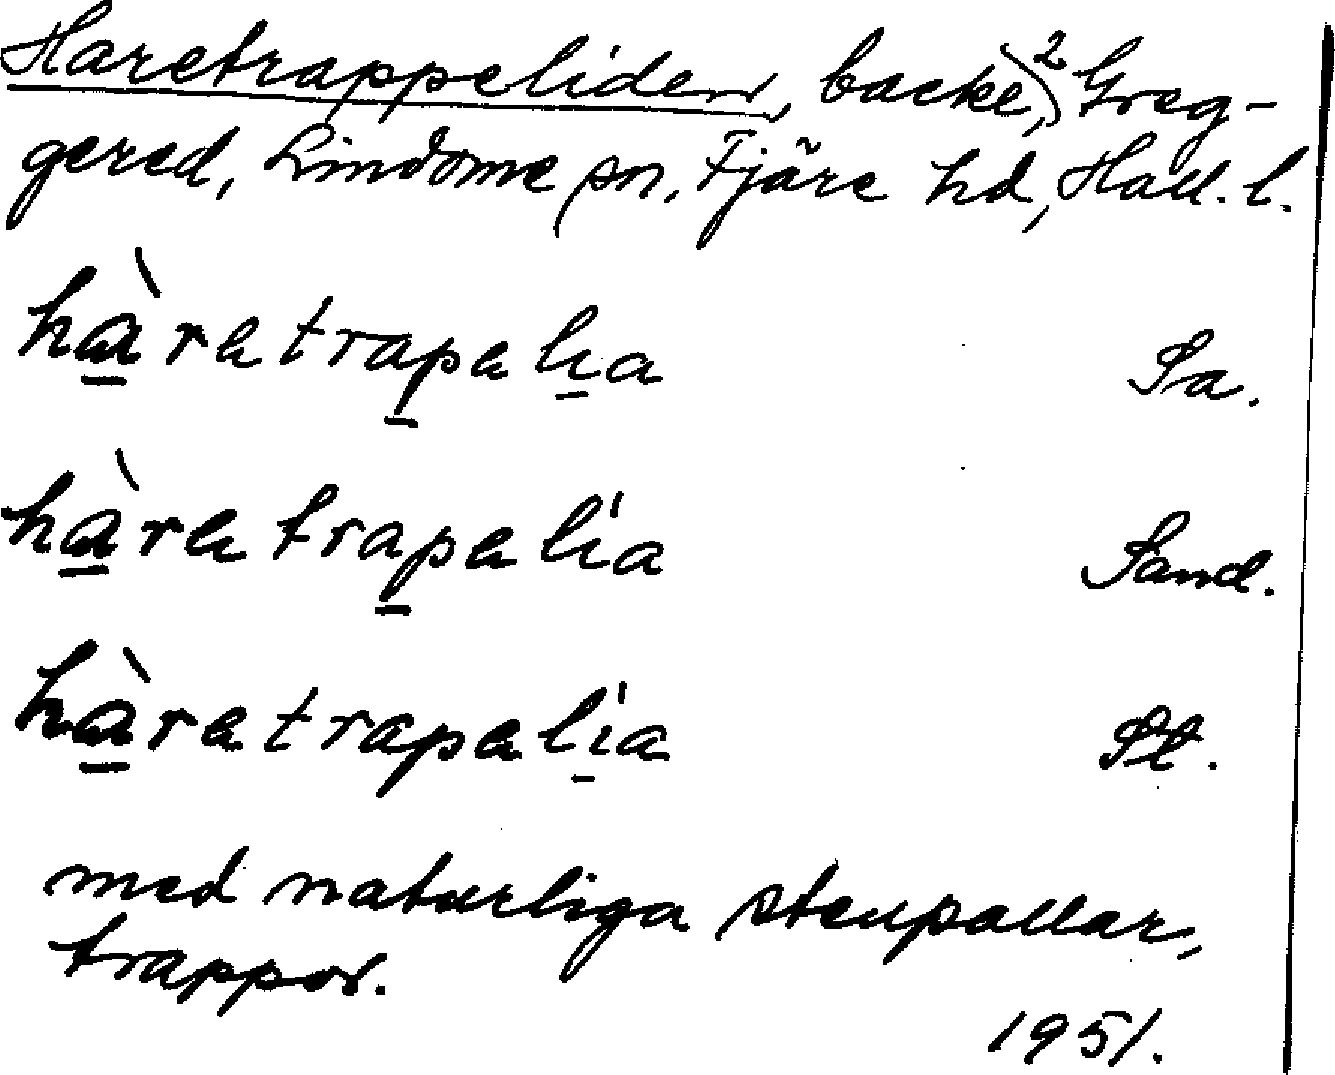 Haretrappeliden, backe,)² Greg-
gered, Lindome sn, Fjäre hd, Hall. l.
hàretrapelia Sa.
hàretrapelia Sand.
hàretrapelia St.
med naturliga stenpallar,
trappor.
1951.